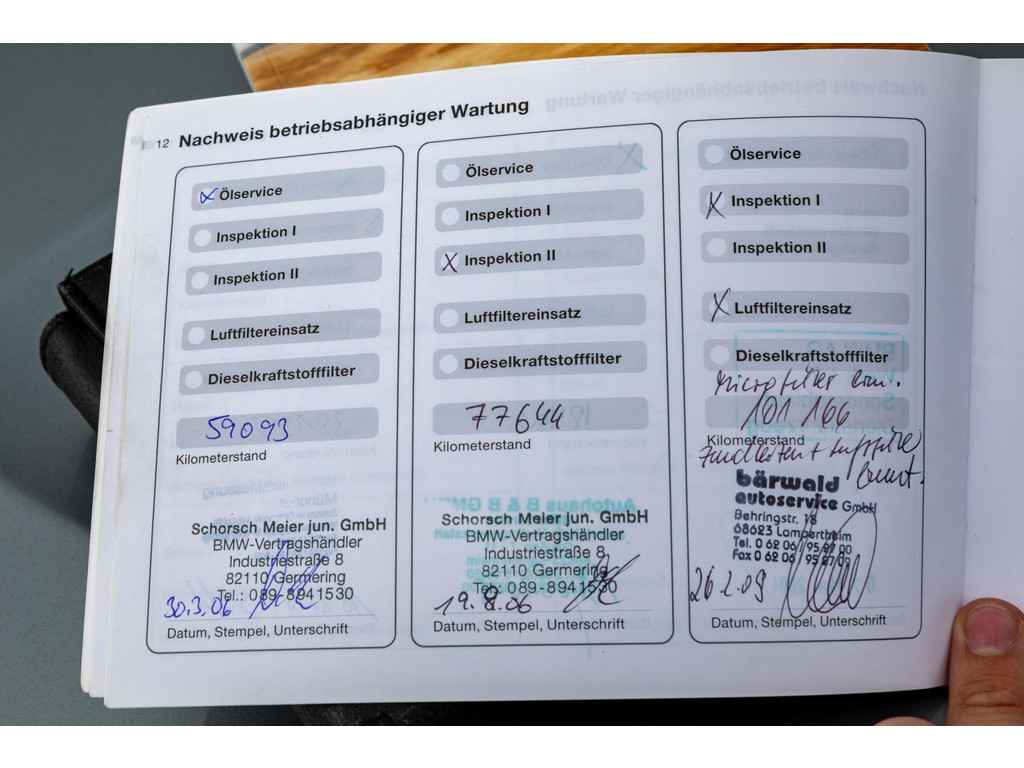 12 Nachweis betriebsabhängiger Wartung
Ölservice
Inspektion I
Inspektion II
Luftfiltereinsatz
Dieselkraftstofffilter
59093
Kilometerstand
Schorsch Meier jun. GmbH
BMW-Vertragshändler
Industriestraße 8
82110 Germering
Tel.: 089-8941530
30.3.06
Datum, Stempel, Unterschrift
Ölservice
Inspektion I
X Inspektion II
Luftfiltereinsatz
Dieselkraftstofffilter
77644
Kilometerstand
Schorsch Meier jun. GmbH
BMW-Vertragshändler
Industriestraße 8
82110 Germering
Tel.: 089-8941530
19.8.06
Datum, Stempel, Unterschrift
Ölservice
X Inspektion I
Inspektion II
X Luftfiltereinsatz
Dieselkraftstofffilter
Microfilter ern.
101 166
Kilometerstand
bärwald
autoservice GmbH
Behringstr. 18
68623 Lampertheim
Tel. 0 62 06 / 95 27 00
Fax 0 62 06 / 95 27 09
26.2.09
Datum, Stempel, Unterschrift